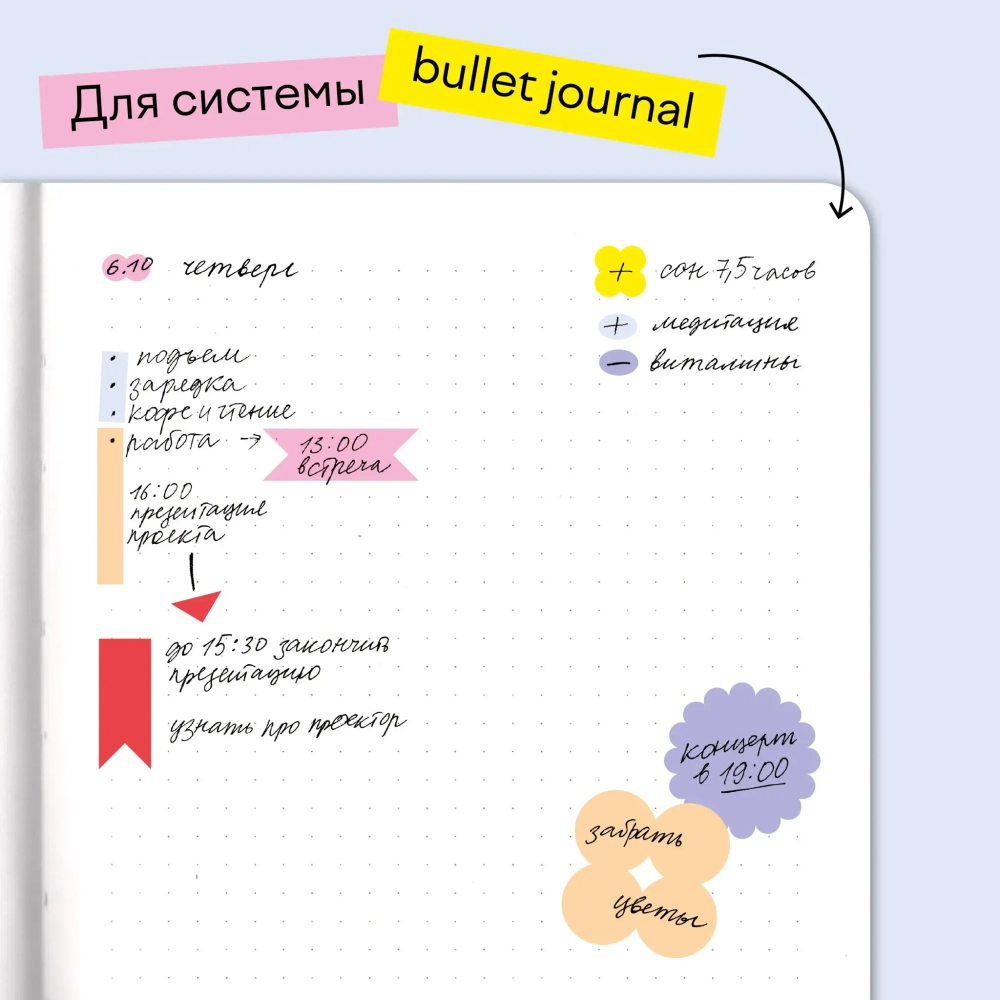 Для системы
bullet journal
6.10 четверг
+ сон 7,5 часов
+ медитация
– витамины
• подъем
• зарядка
• кофе и чтение
• работа → 13:00
встреча
16:00
презентация
проекта
до 15:30 закончить
презентацию
узнать про проектор
концерт
в 19:00
забрать
цветы